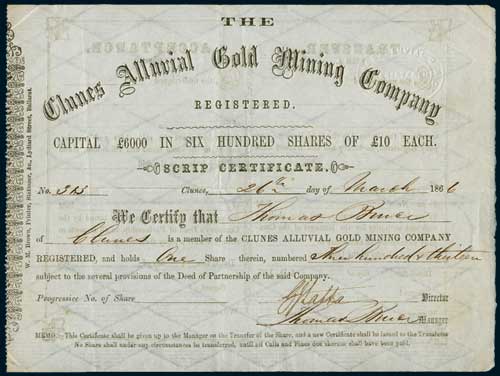 THE
Clunes Alluvial Gold Mining Company
REGISTERED.
CAPITAL £6000 IN SIX HUNDRED SHARES OF £10 EACH.
SCRIP CERTIFICATE.
No. 313 Clunes, 26th day of March 1866
We Certify that Thomas
of Clunes is a member of the CLUNES ALLUVIAL GOLD MINING COMPANY
REGISTERED, and holds One Share therein, numbered Three hundred & thirteen
subject to the several provisions of the Deed of Partnership of the said Company.
Progressive No. of Share
Director
Thomas Manager
MEMO: This Certificate shall be given up to the Manager on the Transfer of the Share, and a new Certificate shall be issued to the Transferee
No Share shall under any circumstances be transferred, until all Calls and Fines due thereon shall have been paid.
W. M. Brown, Printer, Stationer, &c., Lydiard Street, Ballarat.
TRANSFER
ACCEPTANCE.